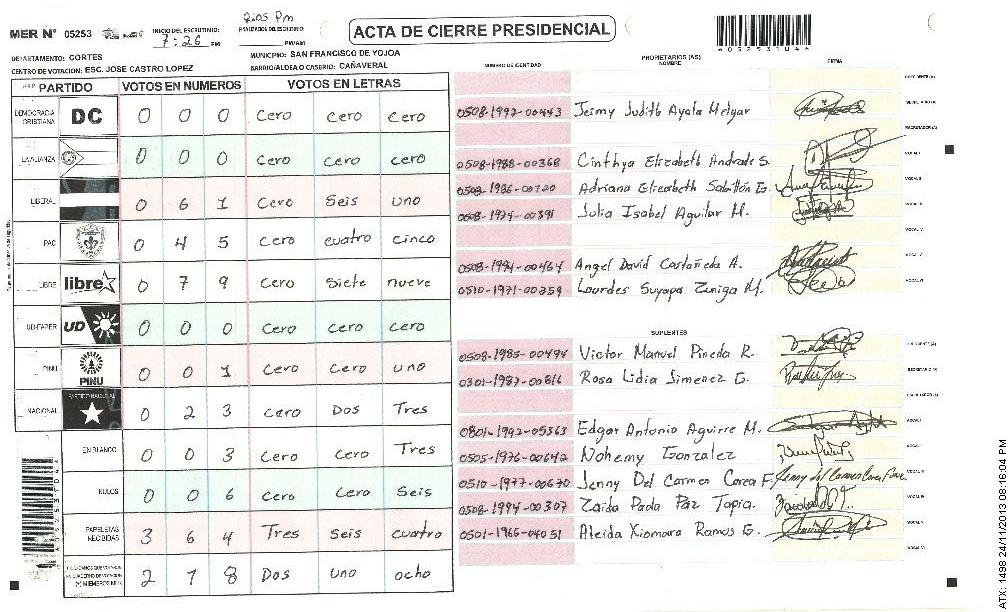 2:05 Pm
MER N° 05253
INICIO DEL ESCRUTINIO: 7:26 PM
FINALIZACION DEL ESCRUTINIO: PM/AM
ACTA DE CIERRE PRESIDENCIAL
DEPARTAMENTO: CORTES
MUNICIPIO: SAN FRANCISCO DE YOJOA
CENTRO DE VOTACION: ESC. JOSE CASTRO LOPEZ
BARRIO/ALDEA O CASERIO: CAÑAVERAL
PARTIDO VOTOS EN NUMEROS VOTOS EN LETRAS
DEMOCRACIA CRISTIANA DC 0 0 0 Cero Cero Cero
LA ALIANZA 0 0 0 Cero Cero Cero
LIBERAL 0 6 1 Cero Seis Uno
PAC 0 4 5 Cero cuatro cinco
LIBRE libre 0 7 9 Cero Siete nueve
UD-FAPER UD 0 0 0 Cero Cero Cero
PINU PINU 0 0 1 Cero Cero uno
NACIONAL PARTIDO NACIONAL 0 2 3 Cero Dos Tres
EN BLANCO 0 0 3 Cero Cero Tres
NULOS 0 0 6 Cero Cero Seis
PAPELETAS RECIBIDAS 3 6 4 Tres Seis cuatro
2 1 8 Dos uno ocho
NUMERO DE IDENTIDAD PROPIETARIOS (AS) NOMBRE FIRMA
0508-1992-00443 Jeimy Judith Ayala Melgar
0508-1988-00368 Cinthya Elizabeth Andrade S.
0508-1986-00720 Adriana Elizabeth Sabillón G.
0508-1974-00391 Julia Isabel Aguilar M.
0508-1994-00464 Angel David Castañeda A.
0510-1971-00259 Lourdes Suyapa Zuniga M.
SUPLENTES
0508-1985-00494 Victor Manuel Pineda R.
0301-1987-00816 Rosa Lidia Jimenez G.
0801-1992-05363 Edgar Antonio Aguirre M.
0505-1976-00642 Nohemy Gonzalez
0510-1977-00670 Jenny Del Carmen Corea F.
0508-1994-00307 Zaida Paola Paz Tapia.
0501-1965-04051 Aleida Xiomara Ramos G.
ATX: 1498 24/11/2013 08:16:04 PM